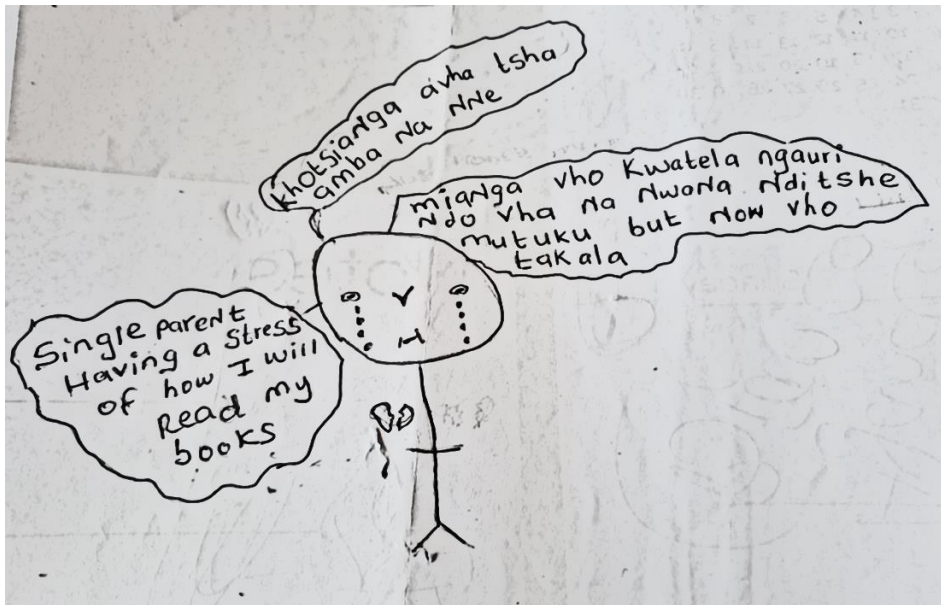 Khotsianga avha tsha
amba na nne
mianga vho kwatela ngauri
ndo vha na nwana nditshe
mutuku but now vho
takala
Single parent
Having a stress
of how I will
Read my
books